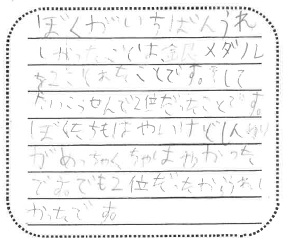 ぼくがいちばんうれ
しかったことは、金メダル
を2ことれたことです。そして
たいこうせんで2位だったことです。
ぼくたちもはやいけど1人
がめっちゃくちゃはやかった
です。でも2位だったからうれし
かったです。